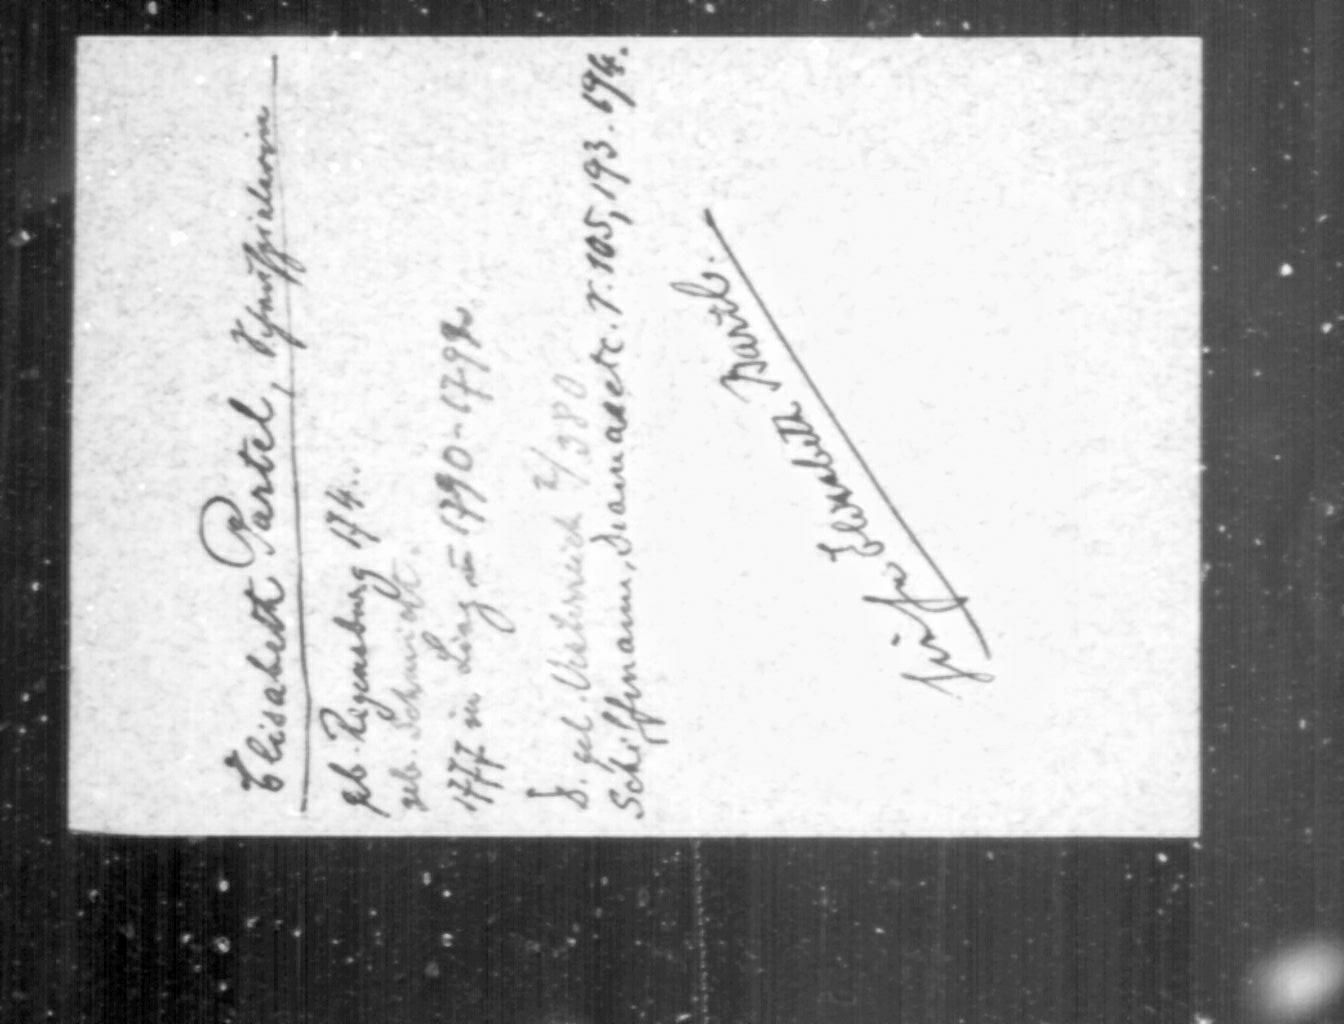 Elisabeth Partel, Schauspielerin
geb. Regensburg 174..
geb. Schmidt.
1777 in Linz u 1790-1792
S. gel. Österreich 2/380
Schiffmann, Drama etc. S. 105, 193. 194.
Siehe Elisabeth Bartl.